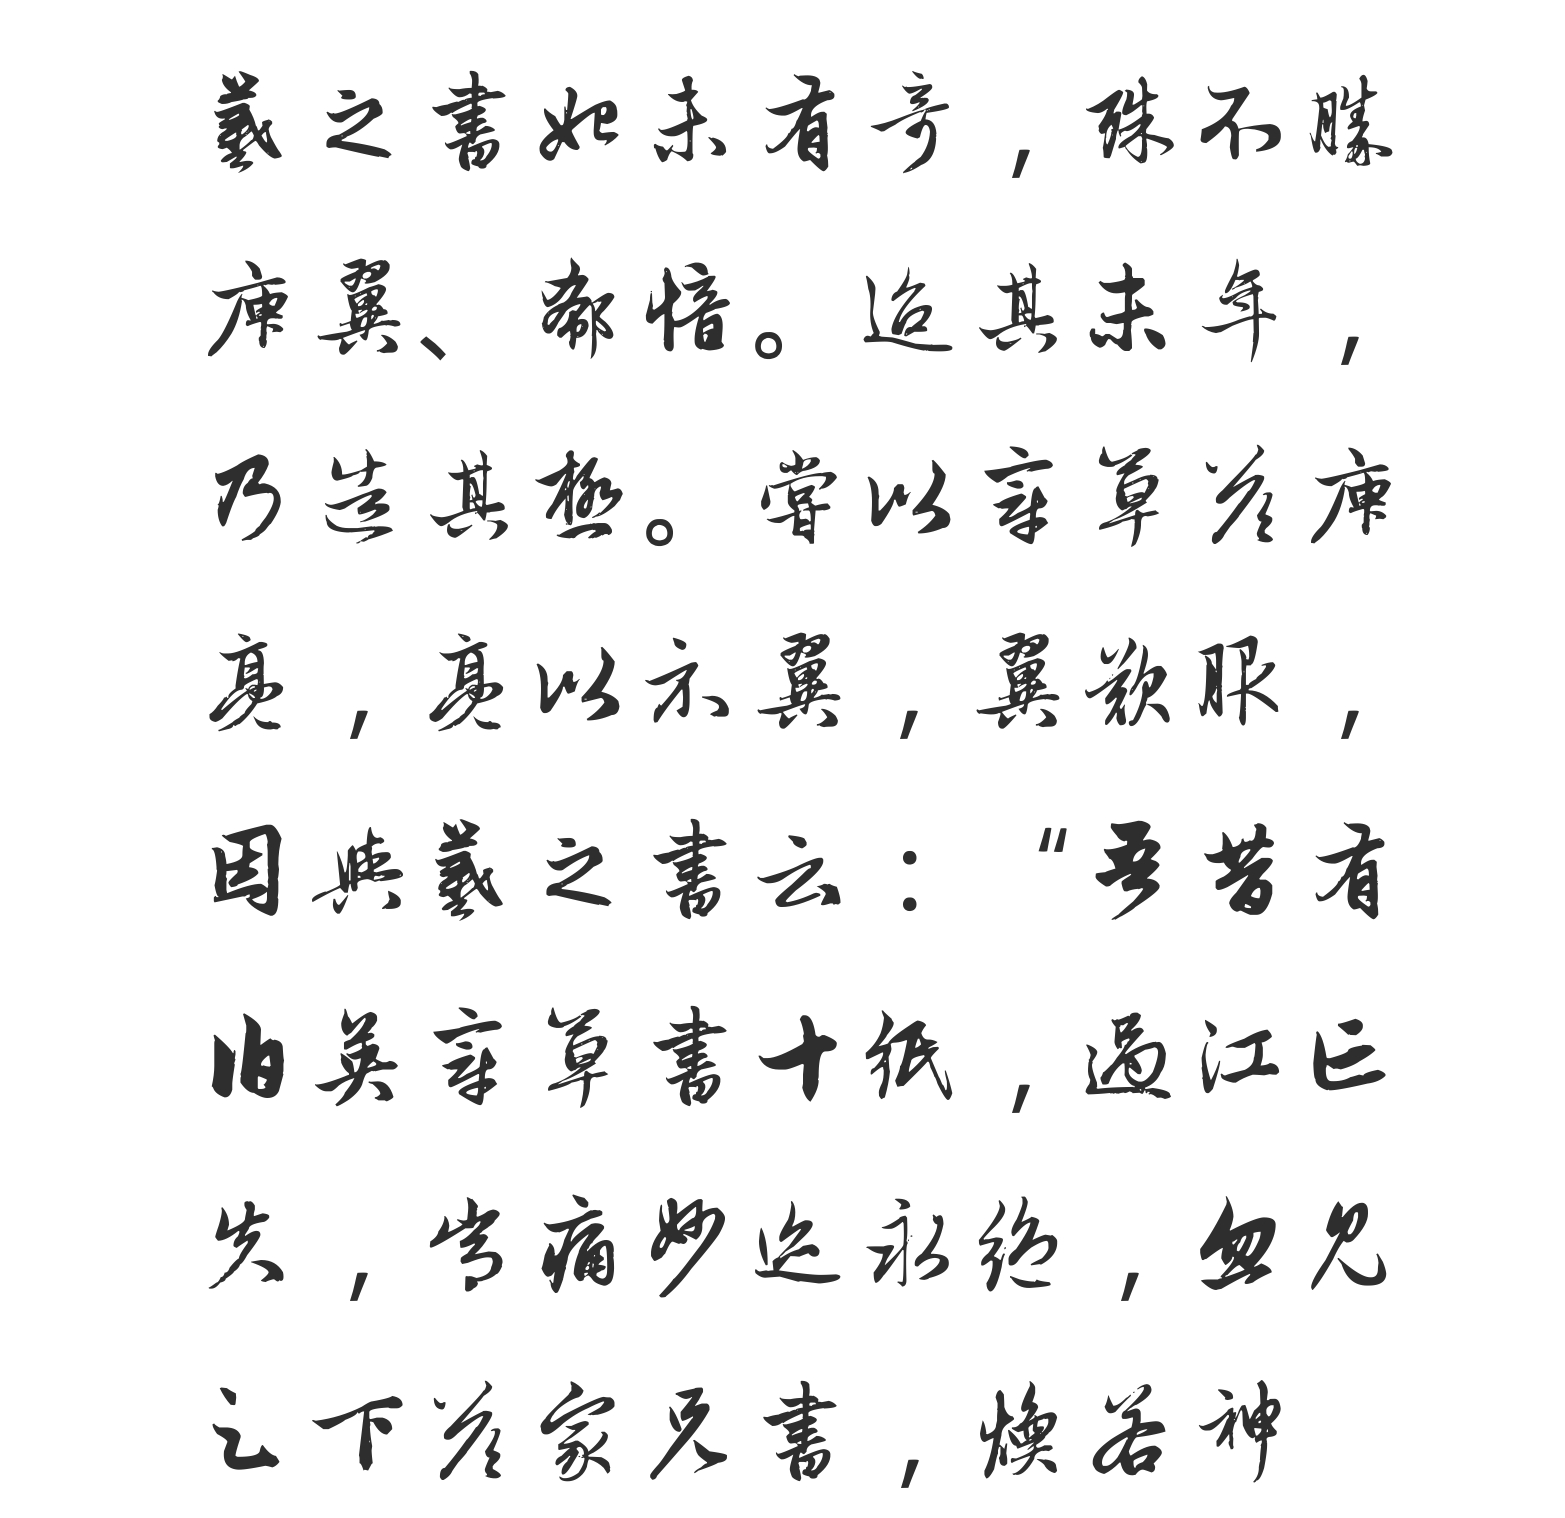 羲之書始未有奇,殊不勝
庾翼、郗愔。迨其末年,
乃造其極。嘗以章草答庾
亮,亮以示翼,翼歎服,
因與羲之書云:“吾昔有
伯英章草書十紙,過江亡
失,常痛妙迹永絕,忽見
足下答家兄書,煥若神